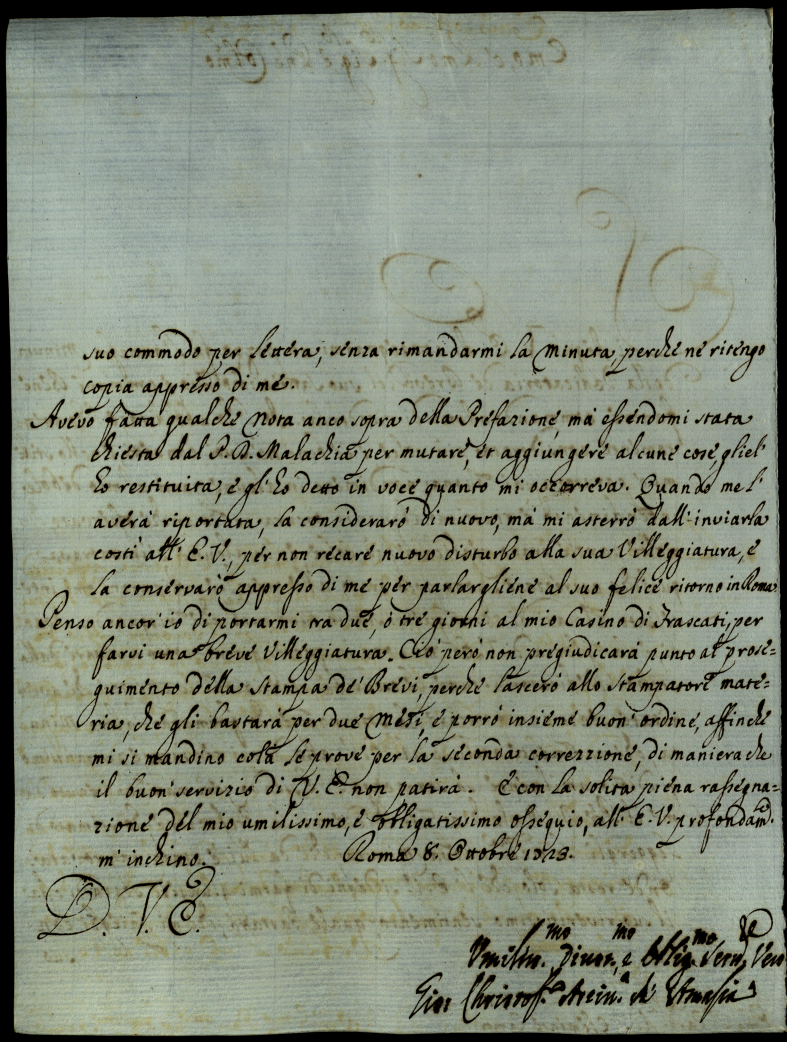 suo commodo per lettera, senza rimandarmi la minuta, perche ne ritengo
copia appresso di me.
Avevo fatta qualche nota anco sopra della Prefazione, ma essendomi stata
chiesta dal P. D. Malachia per mutare, et aggiungere alcune cose, gliel'
ho restituita, e gl'ho detto in voce quanto mi occorreva. Quando me l'
averà riportata, la considerarò di nuovo, mà mi asterrò dall'inviarla
costì all'E. V., per non recare nuovo disturbo alla sua Villeggiatura, e
la conservarò appresso di me per parlargliene al suo felice ritorno in Roma.
Penso ancor'io di portarmi tra due, ò tre giorni al mio Casino di Frascati, per
farvi una breve Villeggiatura. Ciò però non pregiudicarà punto al prose-
guimento della stampa de' Brevi, perche lascerò allo stampatore mate-
ria, che gli bastarà per due mesi, e porrò insieme buon'ordine, affinche
mi si mandino colà le prove per la seconda correzzione, di maniera che
il buon servizio di V. E. non patirà. E con la solita piena rassegna-
zione del mio umilissimo, e obbligatissimo ossequio, all'E. V. profondam.te
m'inchino. Roma 8. Ottobre 1723.
D. V. E.
Umilm.mo Divot.mo e Oblig.mo Ser.
Gio: Christof.o Arciv.o di Amasia